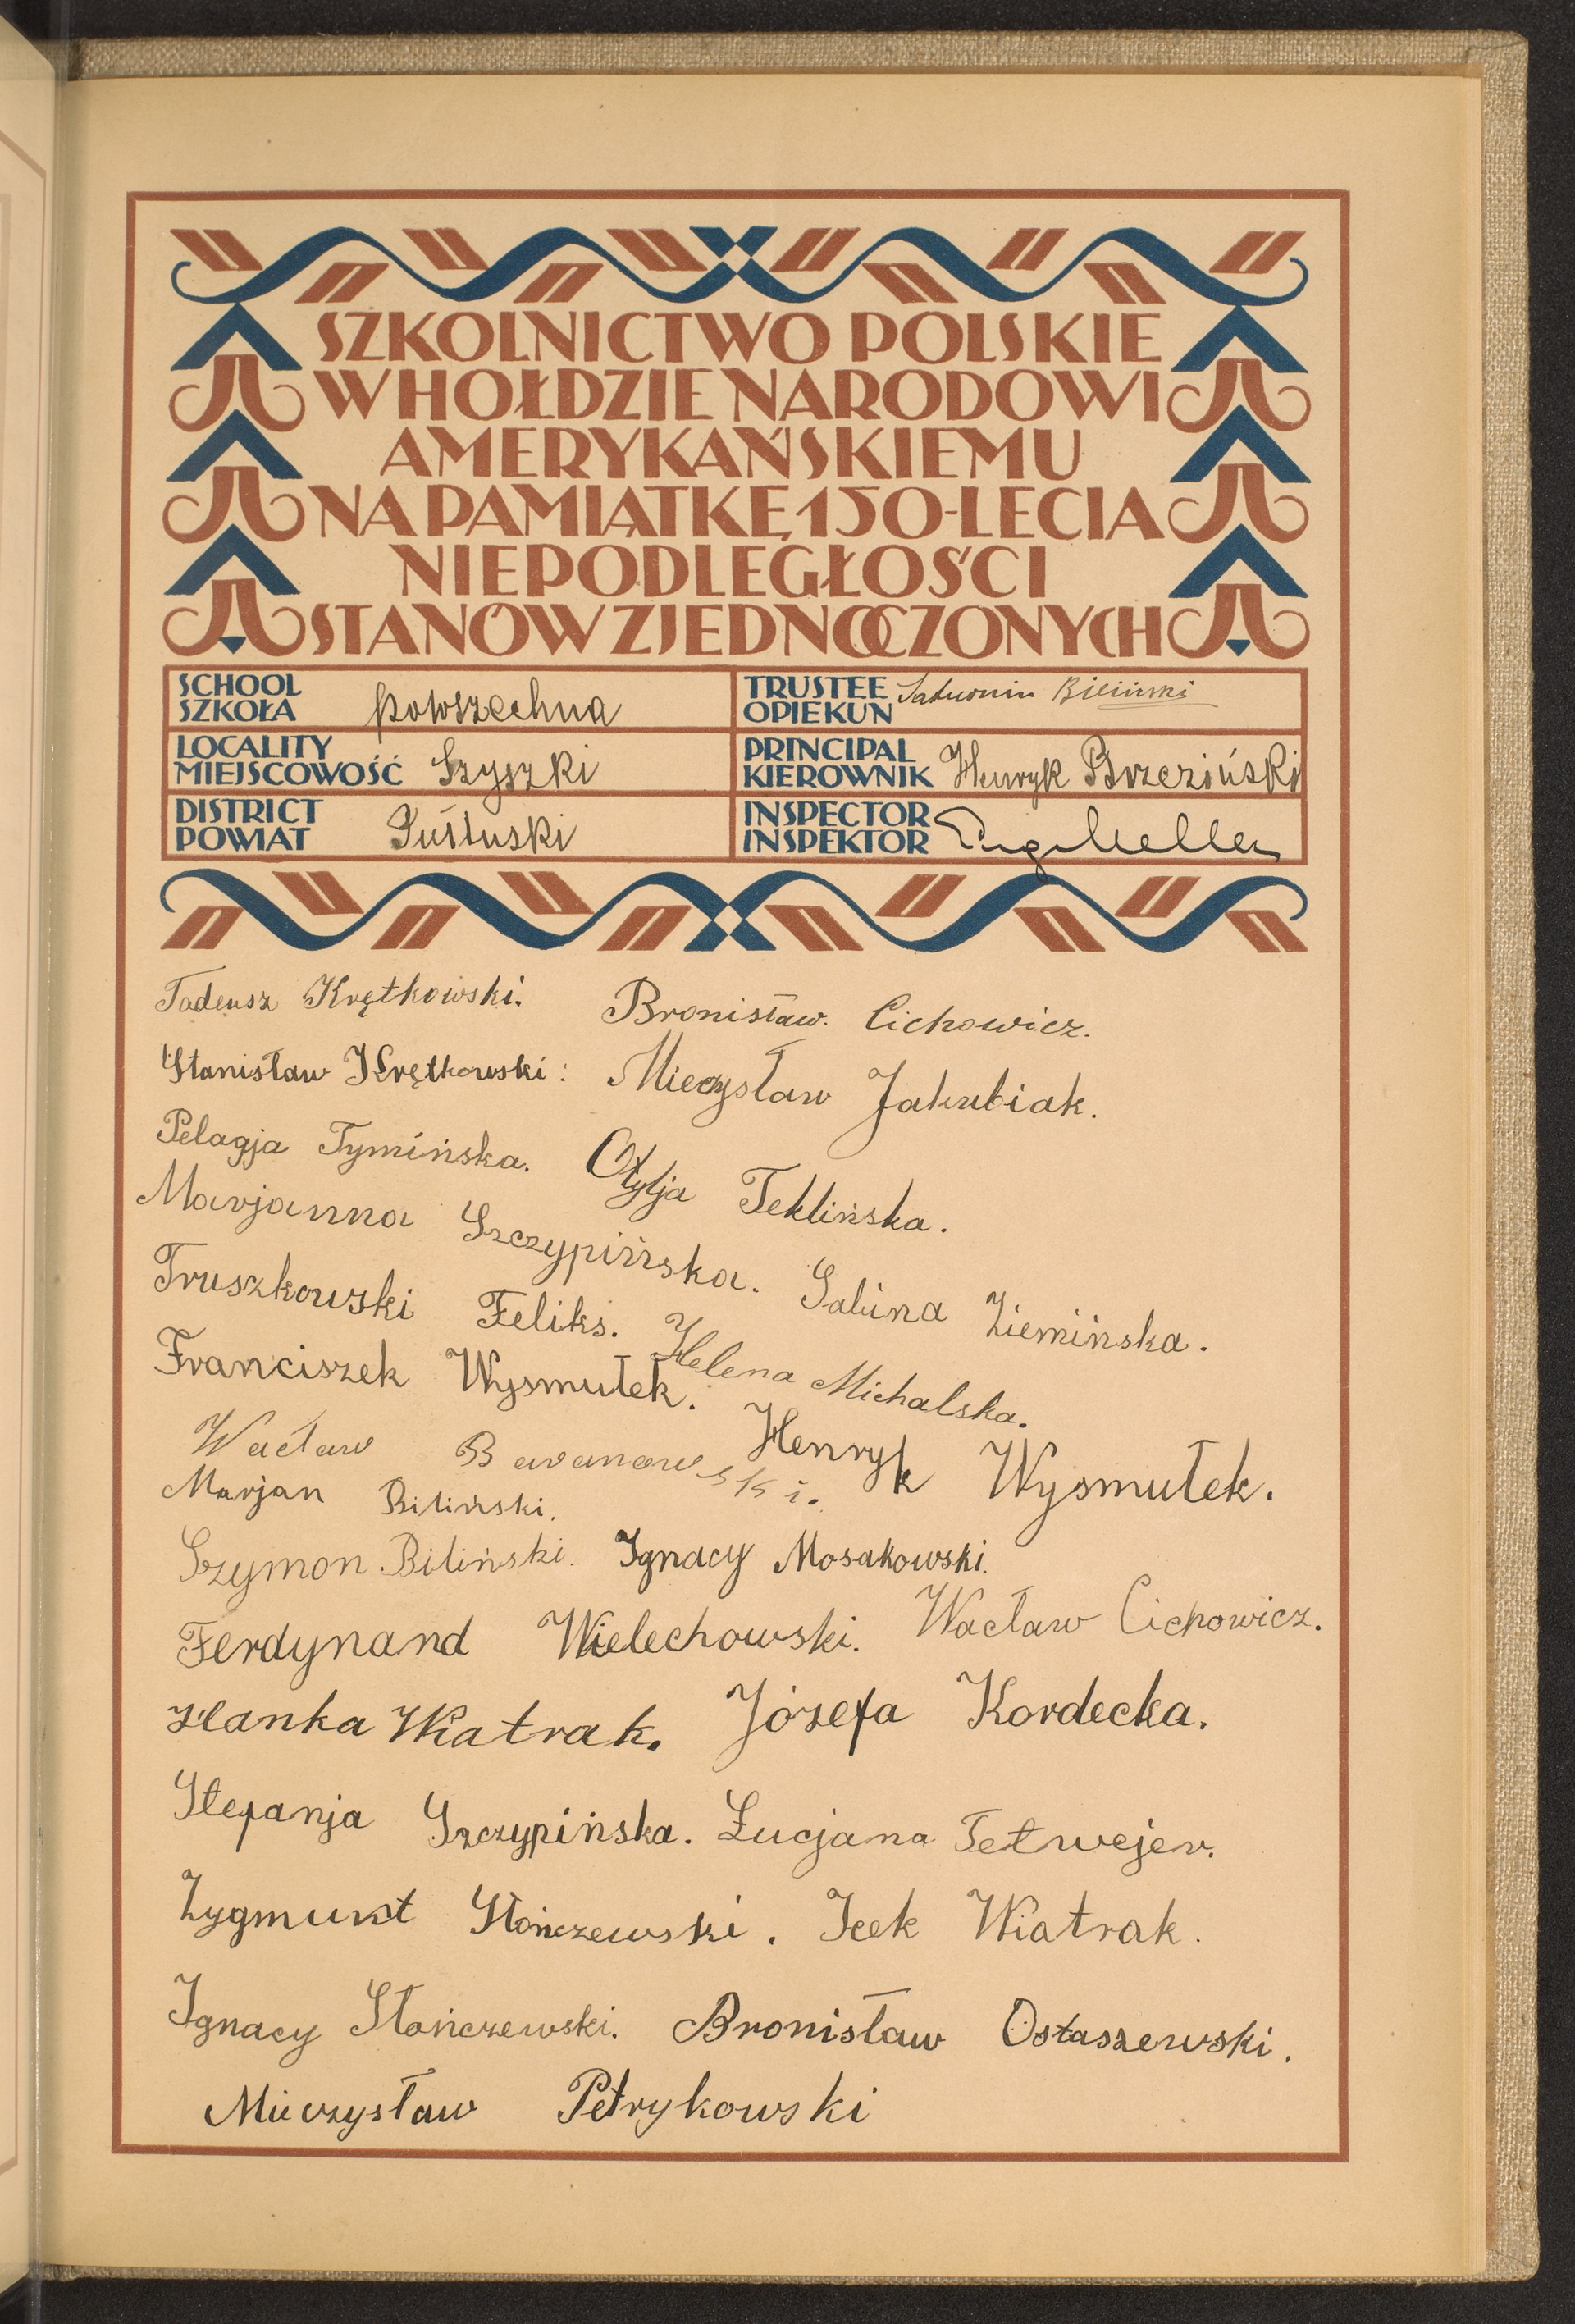 SZKOLNICTWO POLSKIE
W HOŁDZIE NARODOWI
AMERYKAŃSKIEMU
NA PAMIĄTKĘ 150-LECIA
NIEPODLEGŁOŚCI
STANÓW ZJEDNOCZONYCH
SCHOOL
SZKOŁA powszechna
TRUSTEE
OPIEKUN Saturnin Biliński
LOCALITY
MIEJSCOWOŚĆ Szyszki
PRINCIPAL
KIEROWNIK Henryk Brzeziński
DISTRICT
POWIAT Pułtuski
INSPECTOR
INSPEKTOR
Tadeusz Krętkowski. Bronisław. Cichowicz.
Stanisław Krętkowski: Mieczysław Jakubiak.
Pelagja Tymińska. Otylja Teklińska.
Marjanna Szczypińska. Sabina Ziemińska.
Truszkowski Feliks. Helena Michalska.
Franciszek Wysmułek. Henryk Wysmułek.
Wacław Baranowski.
Marjan Biliński.
Szymon Biliński. Ignacy Mosakowski.
Ferdynand Wielechowski. Wacław Cichowicz.
Hanka Wiatrak. Józefa Kordecka.
Stefanja Szczypińska. Łucjana Tetwejer.
Zygmunt Słończewski. Icek Wiatrak.
Ignacy Słończewski. Bronisław Ostaszewski.
Mieczysław Petrykowski